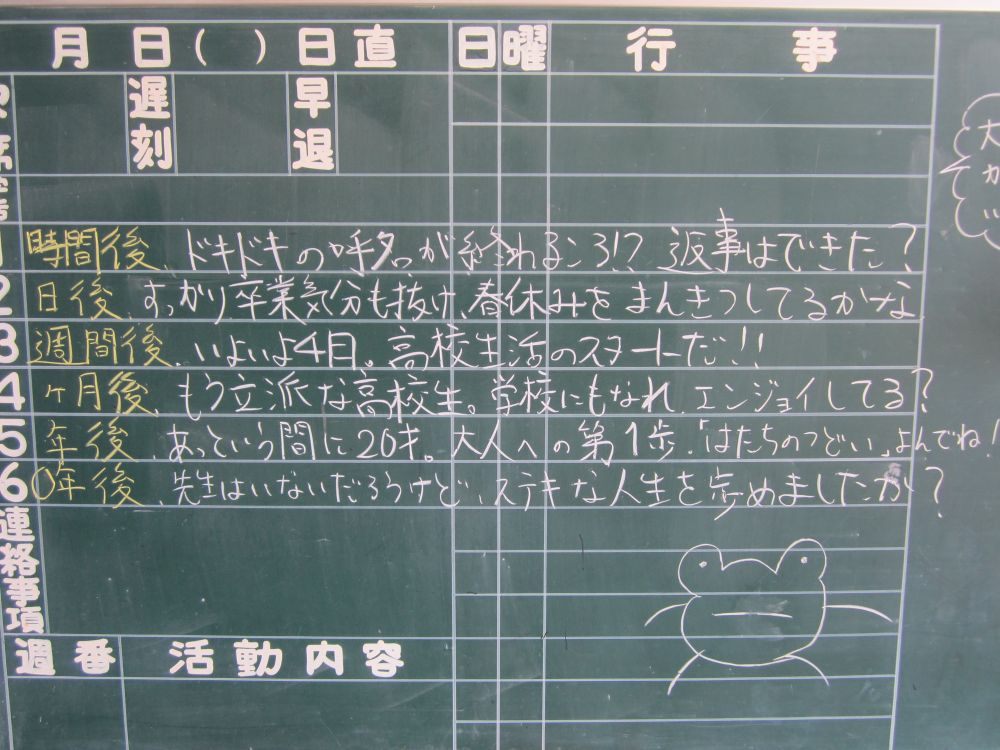 月 日( )日直 日 曜 行 事
遅刻 早退
席
1 時間後、ドキドキの呼名が終われるころ!? 返事はできた?
2 日後、すっかり卒業気分も抜け、春休みをまんきつしてるかな
3 週間後、いよいよ4月。高校生活のスタートだ!!
4 ヶ月後、もう立派な高校生。学校にもなれ、エンジョイしてる?
5 年後、あっという間に20才。大人への第1歩。「はたちのつどい」よんでね!
60年後、先生はいないだろうけど、ステキな人生を歩めましたか?
連絡事項
週番 活動内容